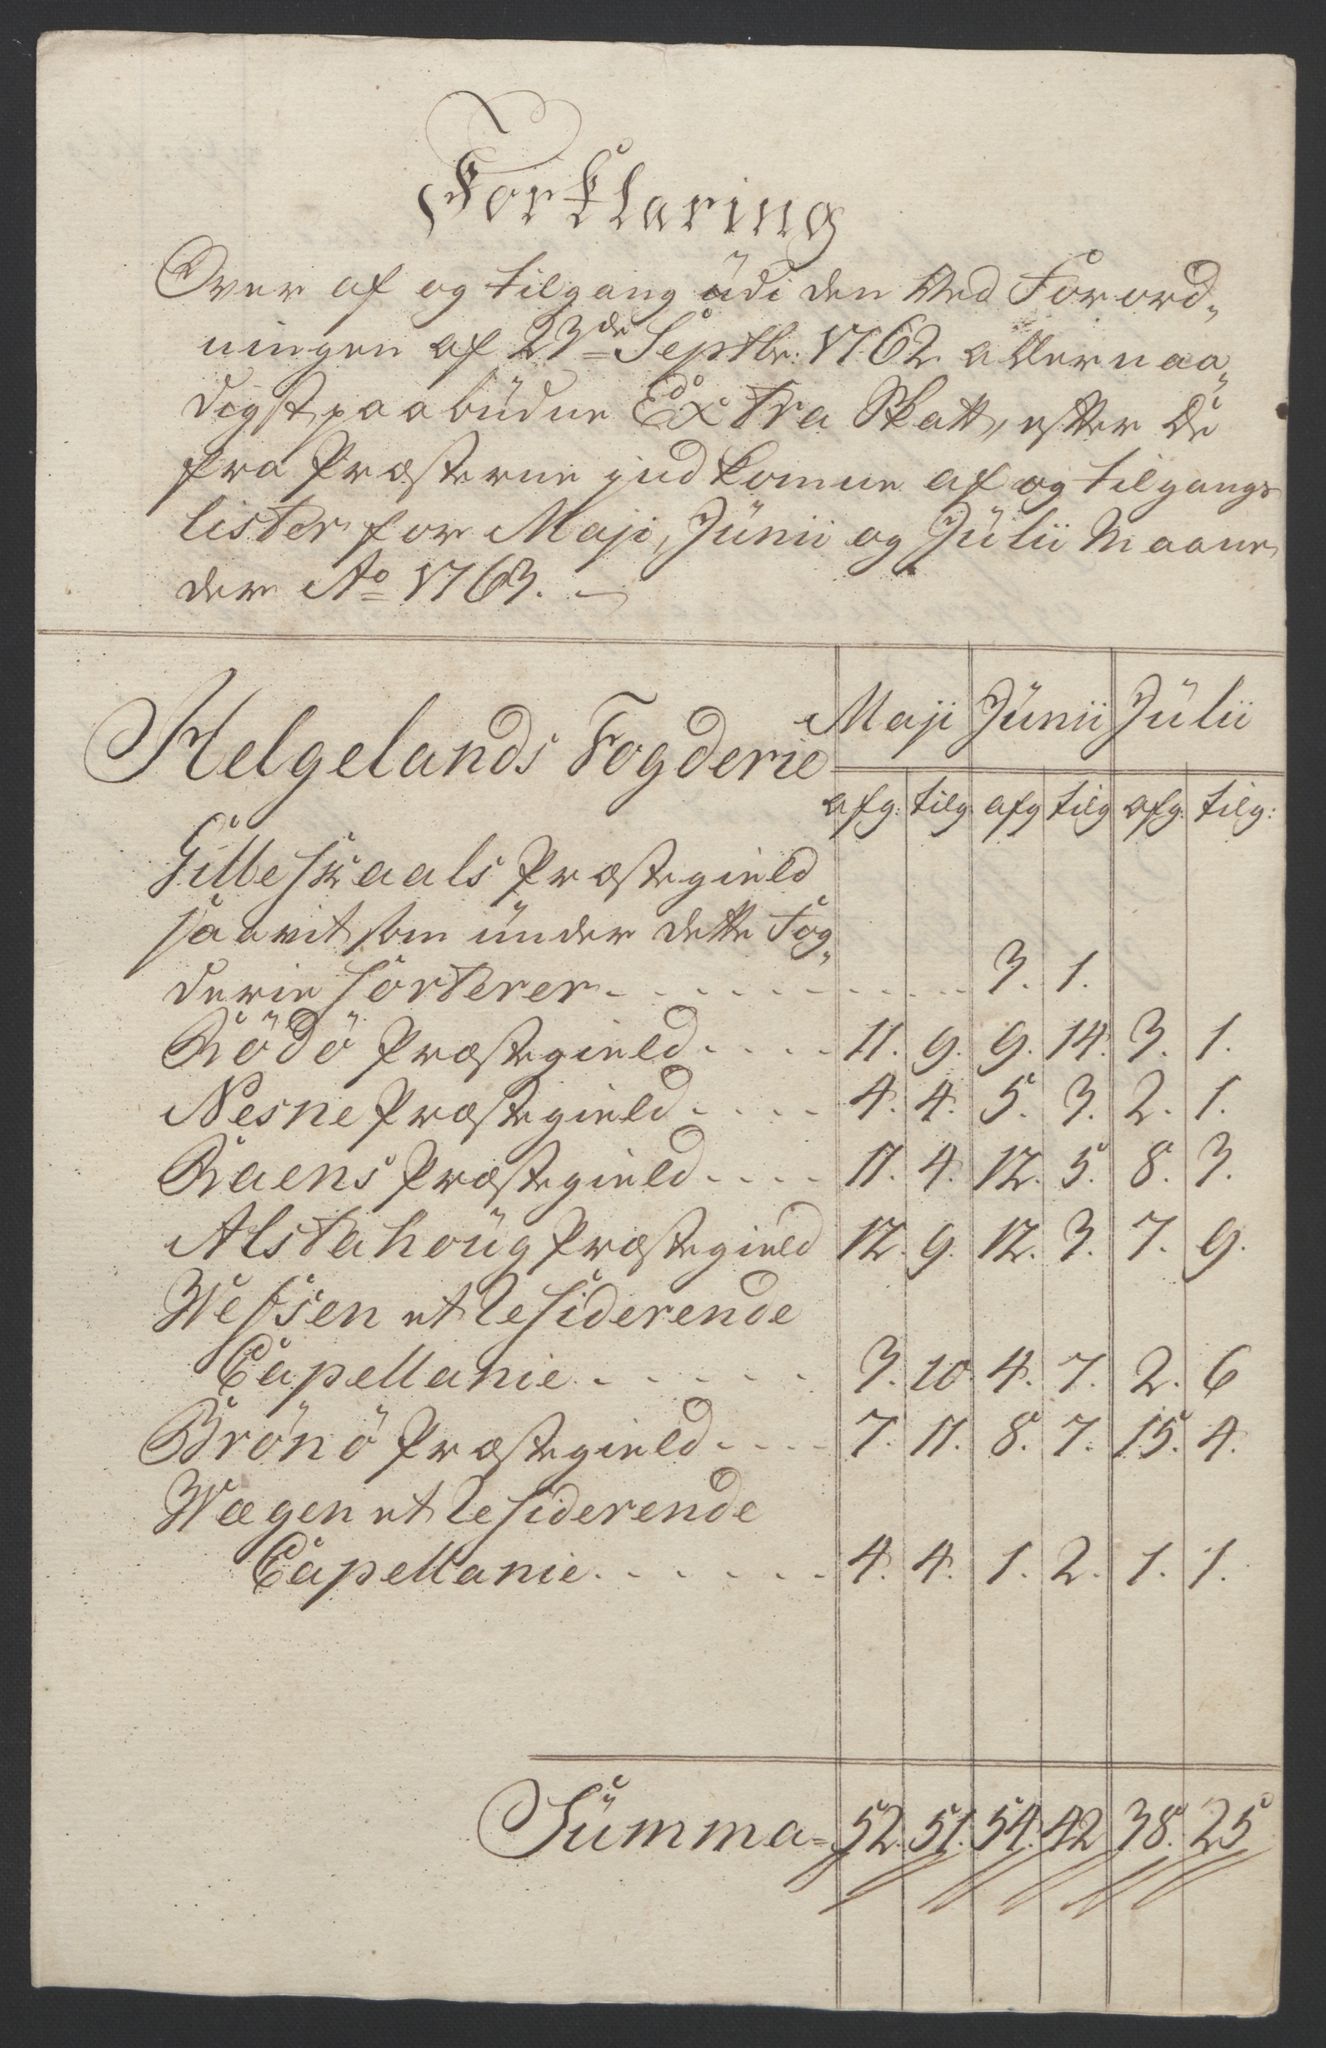 Forklaring
Over af og tilgang udi den Ved Forord-
ningen af 23de Septbr: 1762 allernaa-
digst paabüdne Extra Skatt, efter de
fra Præsterne indkomne af og tilgangs
lister for Maji, Jünii og Jülii Maane
der Ao 1763.
Helgelands Fogderie Maji Jünii Jülii
afg: tilg afg tilg afg. tilg:
Gilleskaals Præstegield
saavit som ünder dette Fog-
derie sorterer 3. 1.
Rödö Præstegield 11. 9. 9. 14. 3. 1.
Nesne Præstegield 4. 4. 5. 3. 2. 1.
Raens Præstegield 11. 4. 12. 5. 8. 3.
Alstahoüg Præstegield 12. 9. 12. 3. 7. 9.
Wefsen et Residerende
Capellanie 3. 10 4. 7. 2. 6
Brönö Præstegield 7. 11. 8. 7. 15. 4.
Wægen et Residerende
Capellanie 4. 4. 1. 2. 1. 1.
Sümma= 52. 51. 54. 42 38. 25